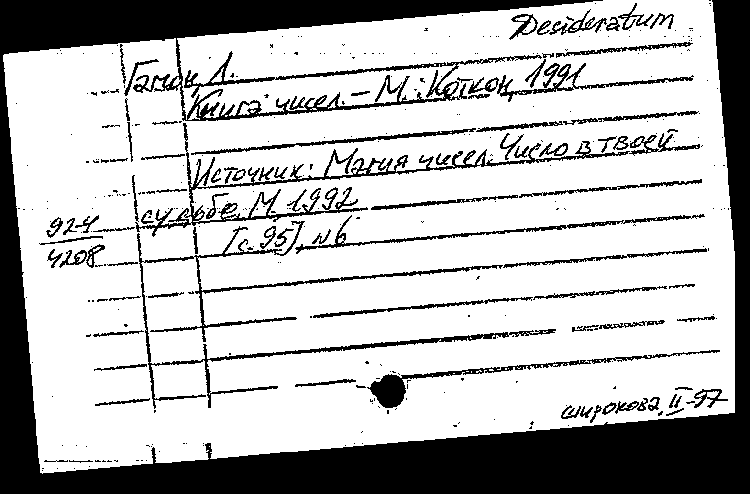 Desideratum
Гамон, Л.
Книга чисел. – М.: Коткон, 1991
Источник: Магия чисел. Число в твоей
судьбе. М. 1992
[с. 95], №6
92-4
4208
широкова II-97